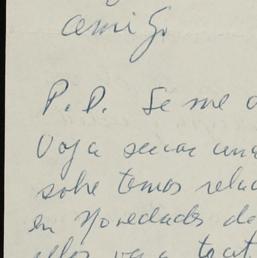 amigo.
P.D. Se me o
Voy a sacar una
sobre temas relac
en Novedades de
ellos voy a trat